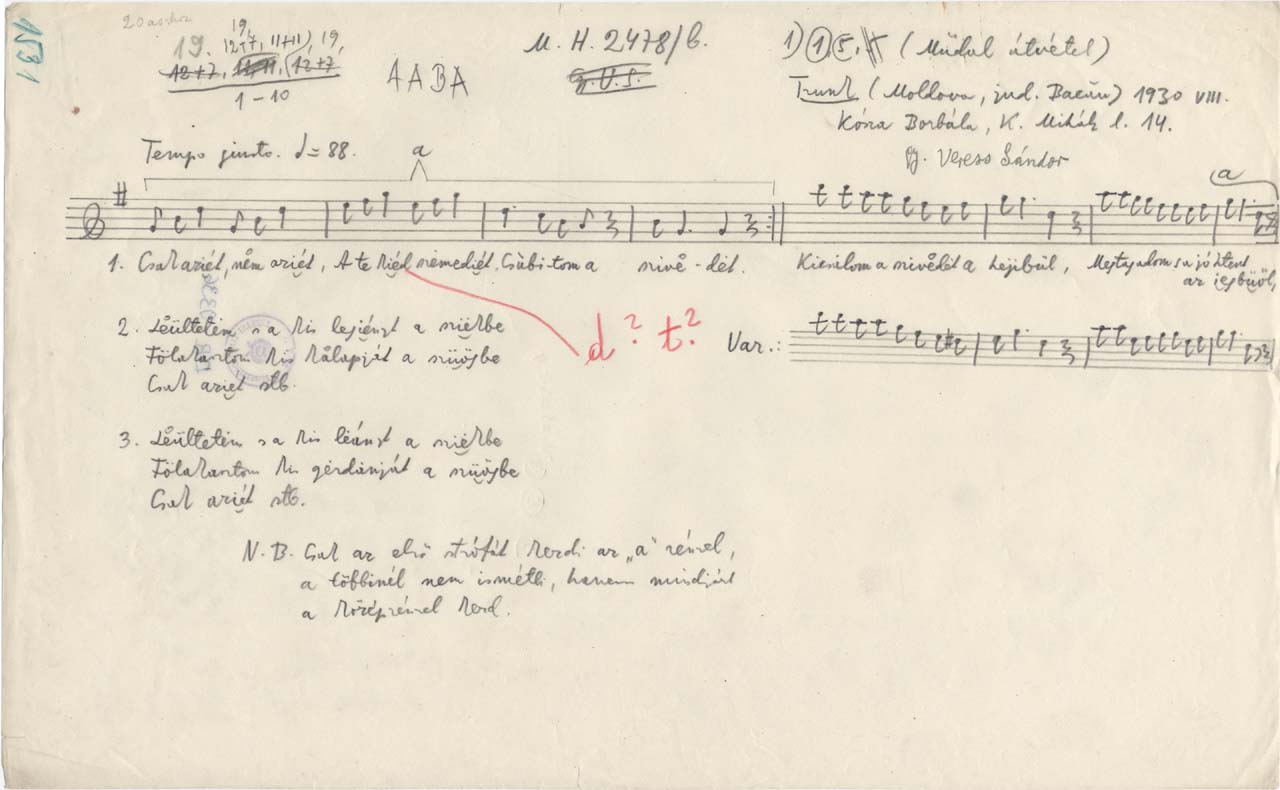 1531
20
19, 
19. 12+7, 11+11), 19,
12+7, 11+11, (12+7
1-10
AABA
M. H. 2478/b.
G.U.S.
1) 1, 5, (Műdal átvétel)
Trunk (Moldova, jud. Bacău) 1930 VIII.
Kósa Borbála, K. Mihály l. 14.
gy. Veress Sándor
Tempo giusto. = 88.
a
a
1. Csak aziét, něm aziét, A te kiéd nemediét, Csábi-tom a szivě-dét. Kicsalom a szivědét a hejibül, Megtagadom s a jó Istent
az iegbüöl,
2. Lěültetém s a kis legiényt a sziékbe
Fölakasztom kis kålapját a szüögbe
Csak aziét stb.
d? t?
Var.:
3. Lěültetém s a kis léányt a sziékbe
Fölakasztom kis gérdányját a szüögbe
Csak aziét stb.
N. B. Csak az első strófát kezdi az „a" résszel,
a többinél nem ismétli, hanem mindjárt
a középrésszel kezd.